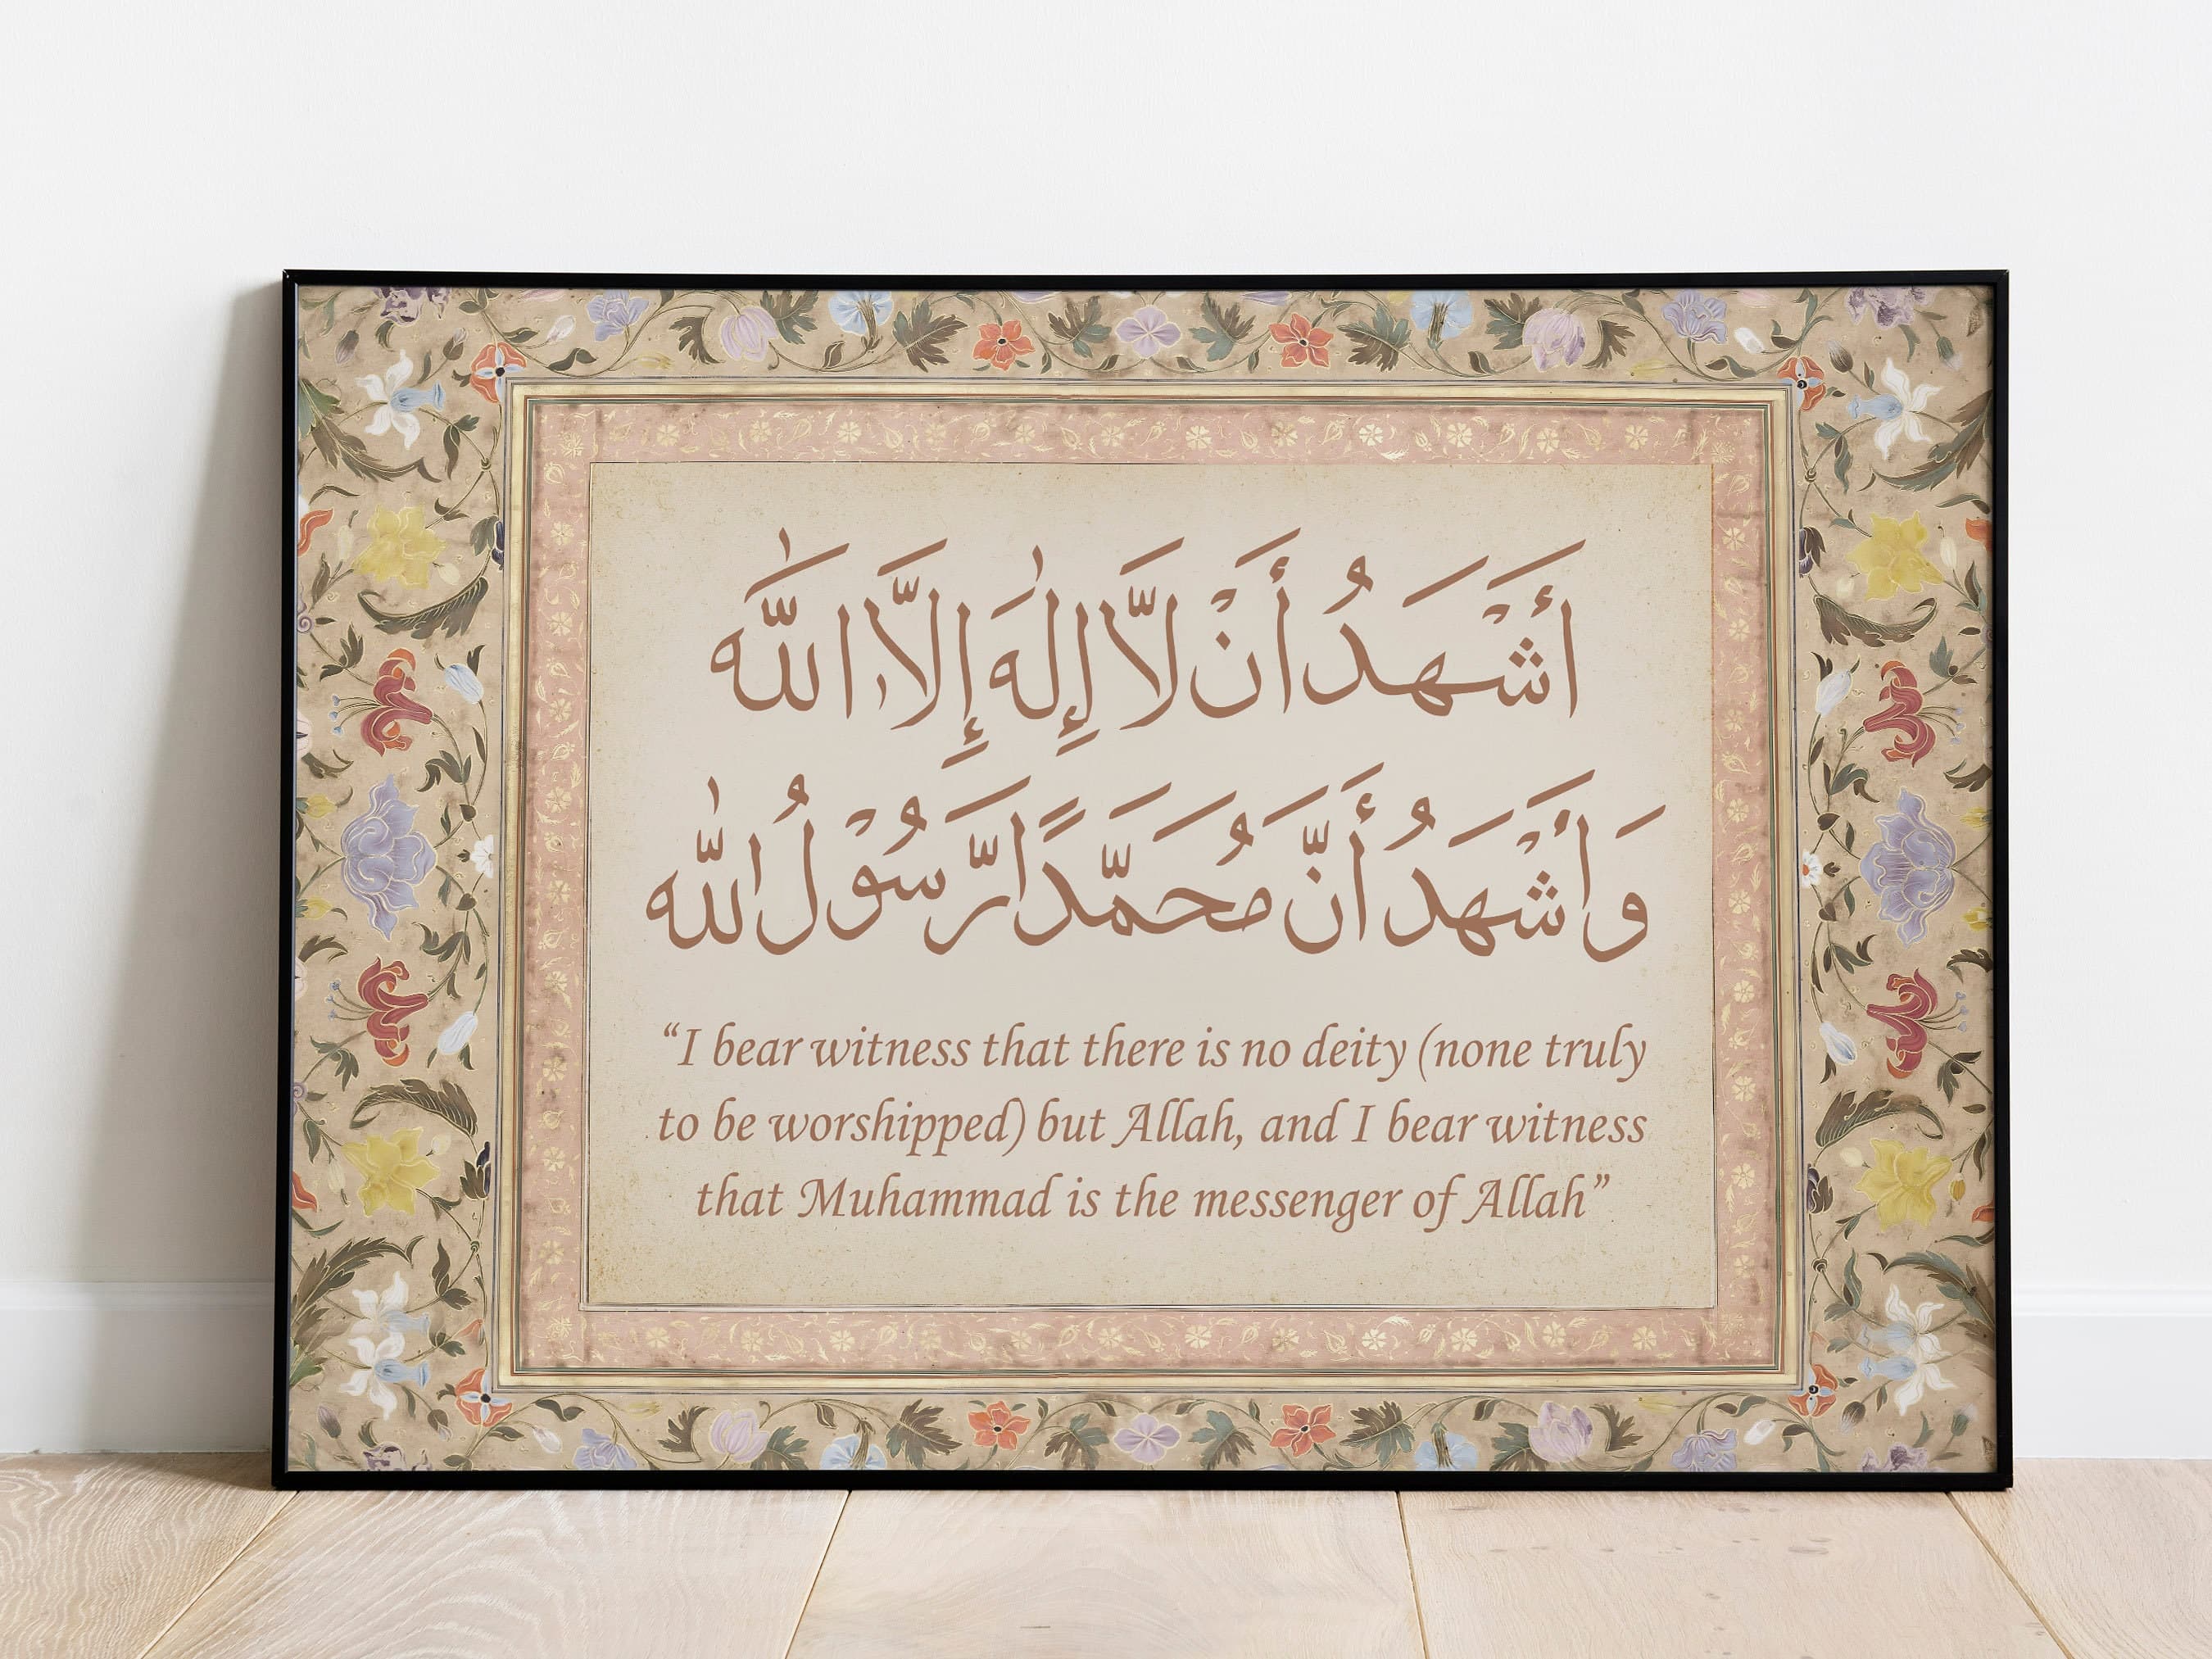 أَشْهَدُ أَنْ لَّا إِلٰهَ إِلَّا اللّٰهُ
وَأَشْهَدُ أَنَّ مُحَمَّدًا رَّسُوْلُ اللّٰه
“I bear witness that there is no deity (none truly
to be worshipped) but Allah, and I bear witness
that Muhammad is the messenger of Allah”